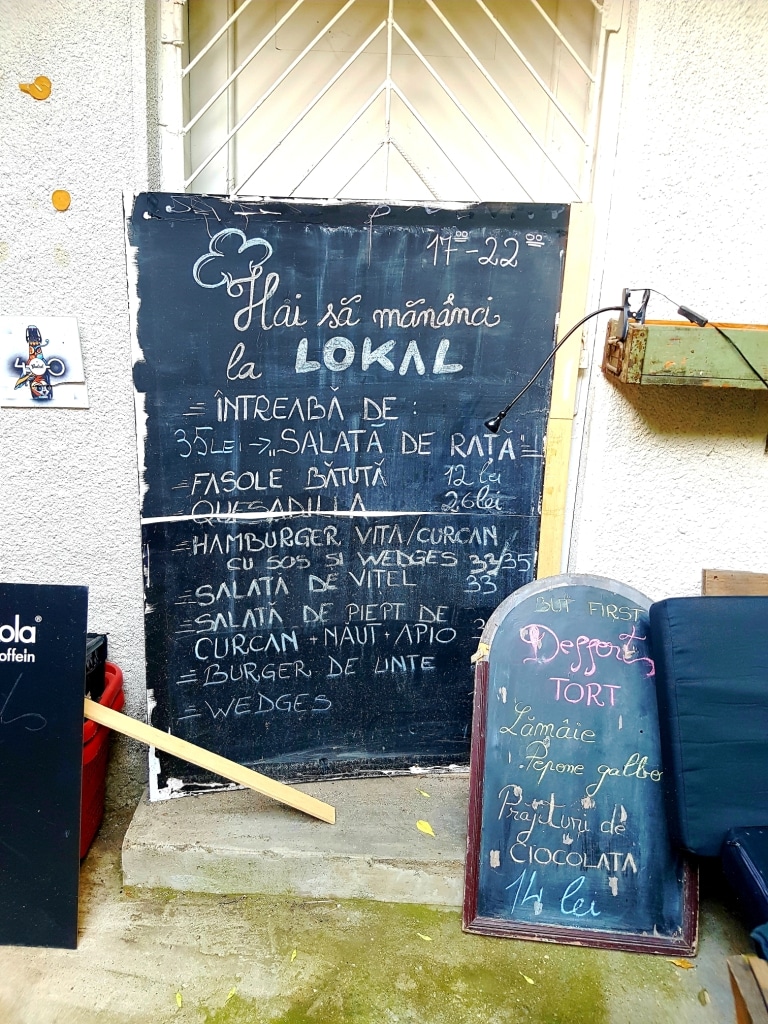 17⁰⁰-22⁰⁰
Hai să mănânci
la LOKAL
= ÎNTREABĂ DE :
35 LEI → "SALATĂ DE RAȚĂ"
= FASOLE BĂTUTĂ 12 lei
QUESADILLA 26 lei
= HAMBURGER VITA/CURCAN
CU SOS SI WEDGES 33/35
= SALATĂ DE VIȚEL 33
= SALATĂ DE PIEPT DE
CURCAN + NĂUT + APIO
= BURGER DE LINTE
= WEDGES
BUT FIRST
Dessert
TORT
Lămâie
Pepene galben
Prăjituri de
CIOCOLATA
14 lei
ola®
offein